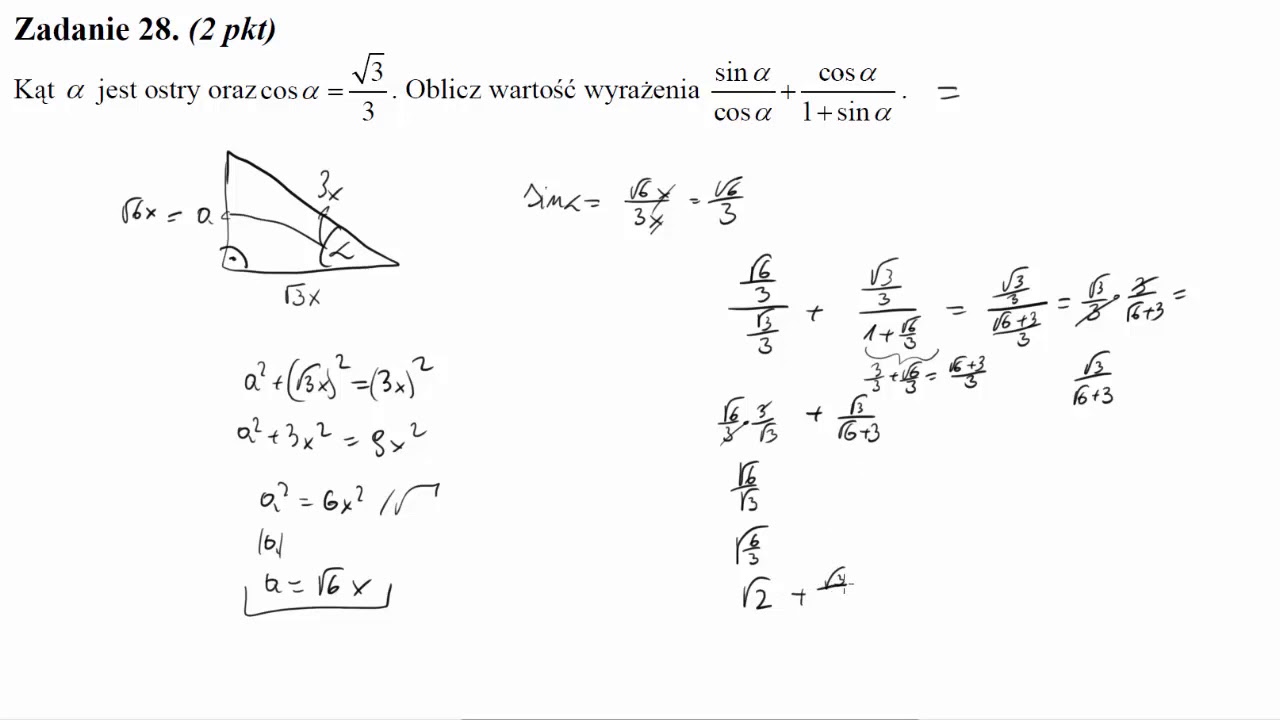 Zadanie 28. (2 pkt)
Kąt α jest ostry oraz cos α = √3/3. Oblicz wartość wyrażenia sin α/cos α + cos α/(1 + sin α). =
3x
√6x = a
α
√3x
sin α = √6x/3x = √6/3
(√6/3)/(√3/3) + (√3/3)/(1 + √6/3) = (√3/3)/((√6+3)/3) = √3/3 · 3/(√6+3) =
3/3 + √6/3 = (√6+3)/3
√3/(√6+3)
a² + (√3x)² = (3x)²
√6/3 · 3/√3 + √3/(√6+3)
a² + 3x² = 9x²
√6/√3
a² = 6x² /√
|a|
√(6/3)
a = √6 x
√2 + √3